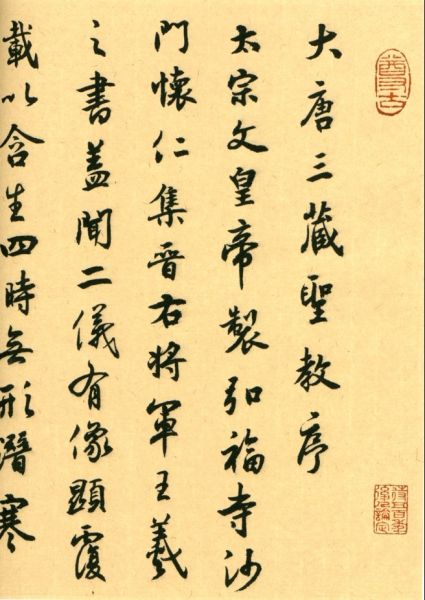 大唐三藏聖教序
太宗文皇帝製弘福寺沙
門懷仁集晉右将軍王羲
之書蓋聞二儀有像顯覆
載以含生四時無形潛寒